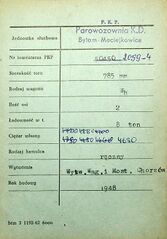 P. K. P.
Jednostka służbowa
Parowozownia K.D.
Bytom-Maciejkowice
Nr inwentarza PKP
2059-4
Szerokość toru
785 mm
Rodzaj wagonu
Wh
Ilość osi
2
Ładowność w t.
8 ton
Ciężar własny
4650
Rodzaj hamulca
ręczny
Wytwórnia
Wytw. Wag. i Most. Chorzów
Rok budowy
1948